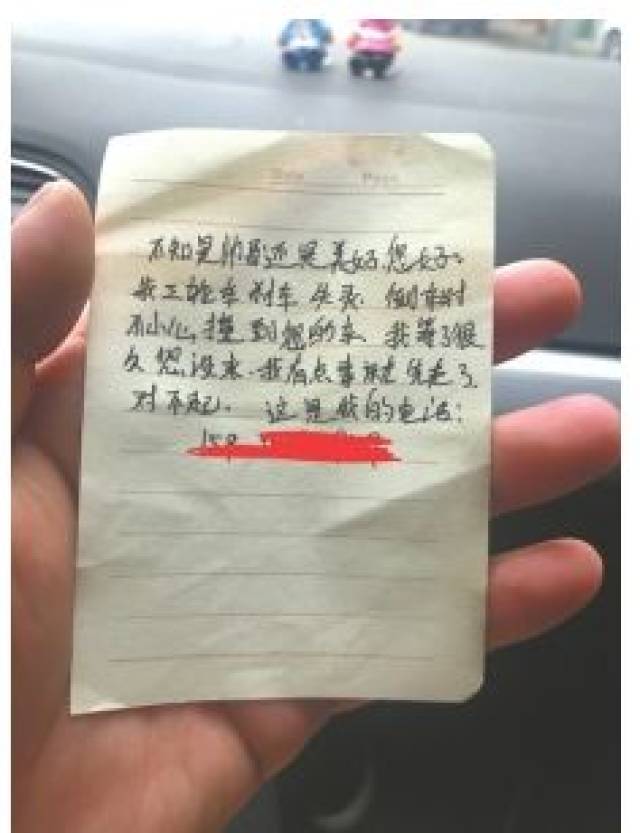 Date Page
不知是帅哥还是美好,您好:
我三轮车刹车失灵,倒车时
不小心撞到您的车,我等了很
久您没来.我有点事就先走了
对不起. 这是我的电话: